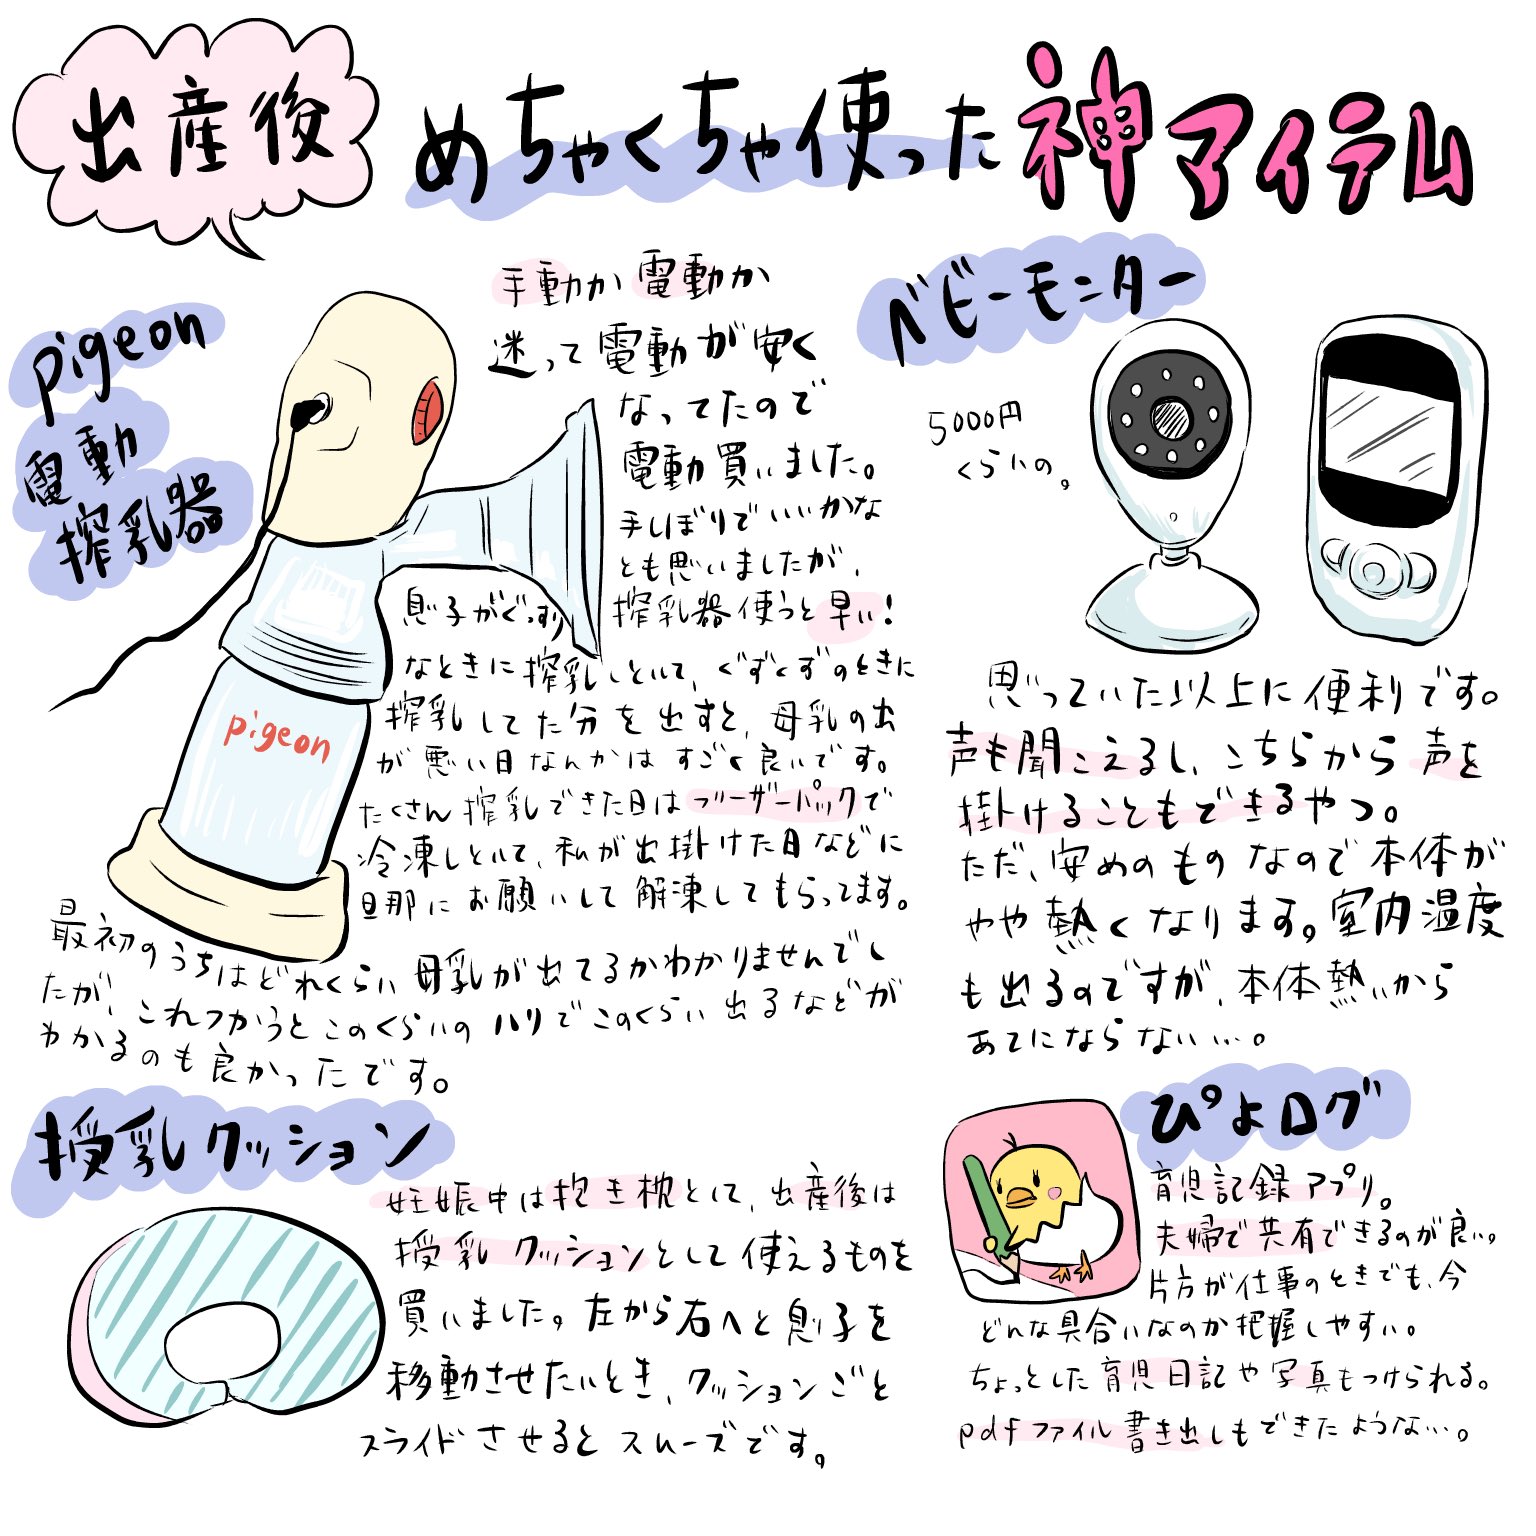 出産後
めちゃくちゃ使った神アイテム
pigeon
電動
搾乳器
手動か電動か
迷って電動が安く
なってたので
電動買いました。
手しぼりでいいかな
とも思いましたが、
搾乳器使うと早い!
息子がぐっすり
なときに搾乳しといて、ぐずぐずのときに
搾乳してた分を出すと、母乳の出
が悪い日なんかはすごく良いです。
たくさん搾乳できた日はフリーザーパックで
冷凍しといて、私が出掛けた日などに
旦那にお願いして解凍してもらってます。
最初のうちはどれくらい母乳が出てるかわかりませんでし
たが、これつかうとこのくらいのハリでこのくらい出るなどが
わかるのも良かったです。
pigeon
ベビーモニター
5000円
くらいの。
思っていた以上に便利です。
声も聞こえるし、こちらから声を
掛けることもできるやつ。
ただ、安めのものなので本体が
やや熱くなります。室内温度
も出るのですが、本体熱いから
あてにならない…。
授乳クッション
妊娠中は抱き枕として、出産後は
授乳クッションとして使えるものを
買いました。左から右へと息子を
移動させたいとき、クッションごと
スライドさせるとスムーズです。
ぴよログ
育児記録アプリ。
夫婦で共有できるのが良い。
片方が仕事のときでも、今
どんな具合いなのか把握しやすい。
ちょっとした育児日記や写真もつけられる。
pdfファイル書き出しもできたような…。